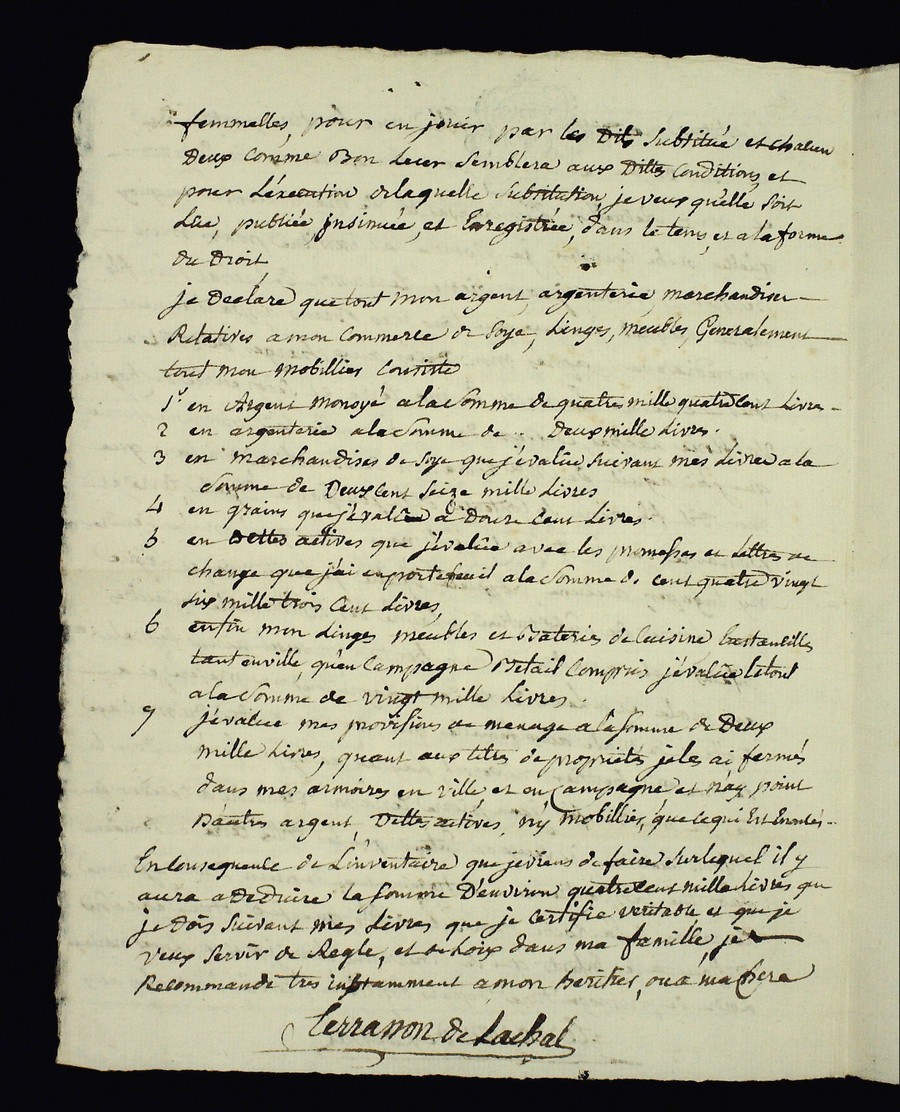 femmelles, pour en jouir par les Dits Substitué et chacun
Deux Comme Bon Leur Semblera aux Dittes Conditions et
pour L'éxecution de laquelle Substitution, je veux qu'elle Soit
Lüe, publiée, jnsinuée, et Enregistrée, dans le tems, et a la forme
du Droit,
je Déclare que tout mon argent, argenterie, marchandises
Relatives a mon Commerce de Soye, Linges, meubles, Generalement
tout mon mobillier Consiste
1° en Argent monoyé a la Somme de quatre mille quatre Cent Livres
2 en argenterie a la Somme de .. Deux mille Livres.
3 en marchandises de Soye que j'évalüe Suivant mes Livres a la
Somme de Deux Cent Seize mille Livres
4 en grains que j'évalüe a Douze Cent Livres.
5 en Dettes actives que j'évalüe avec les promesses et Lettres de
change que j'ai en portefeuil a la Somme de cent quatre vingt
Six mille trois Cent Livres,
6 enfin mon Linges meubles et Baterie de Cuisine
tant en ville, qu'en Campagne Bétail Compris j'évalüe le tout
a la Somme de vingt mille Livres.
7 j'évalüe mes provisions de menage a la Somme de Deux
mille Livres, quant aux titres de proprietés je les ai fermés
dans mes armoires en ville et en Campagne et n'ay point
D'autres argent, Dettes actives, n'y mobillier, que ce qui Est
En Consequence de L'inventaire que je viens de faire Sur lequel il y
aura a Deduire la Somme D'environ quatre Cent mille Livres que
je dois Suivant mes Livres que je Certifie veritable et que je
veux Servir de Regle, et de Loix dans ma famille, je
Recommande tres instamment a mon heritier, ou a ma Chere
Terrasson de Lachal